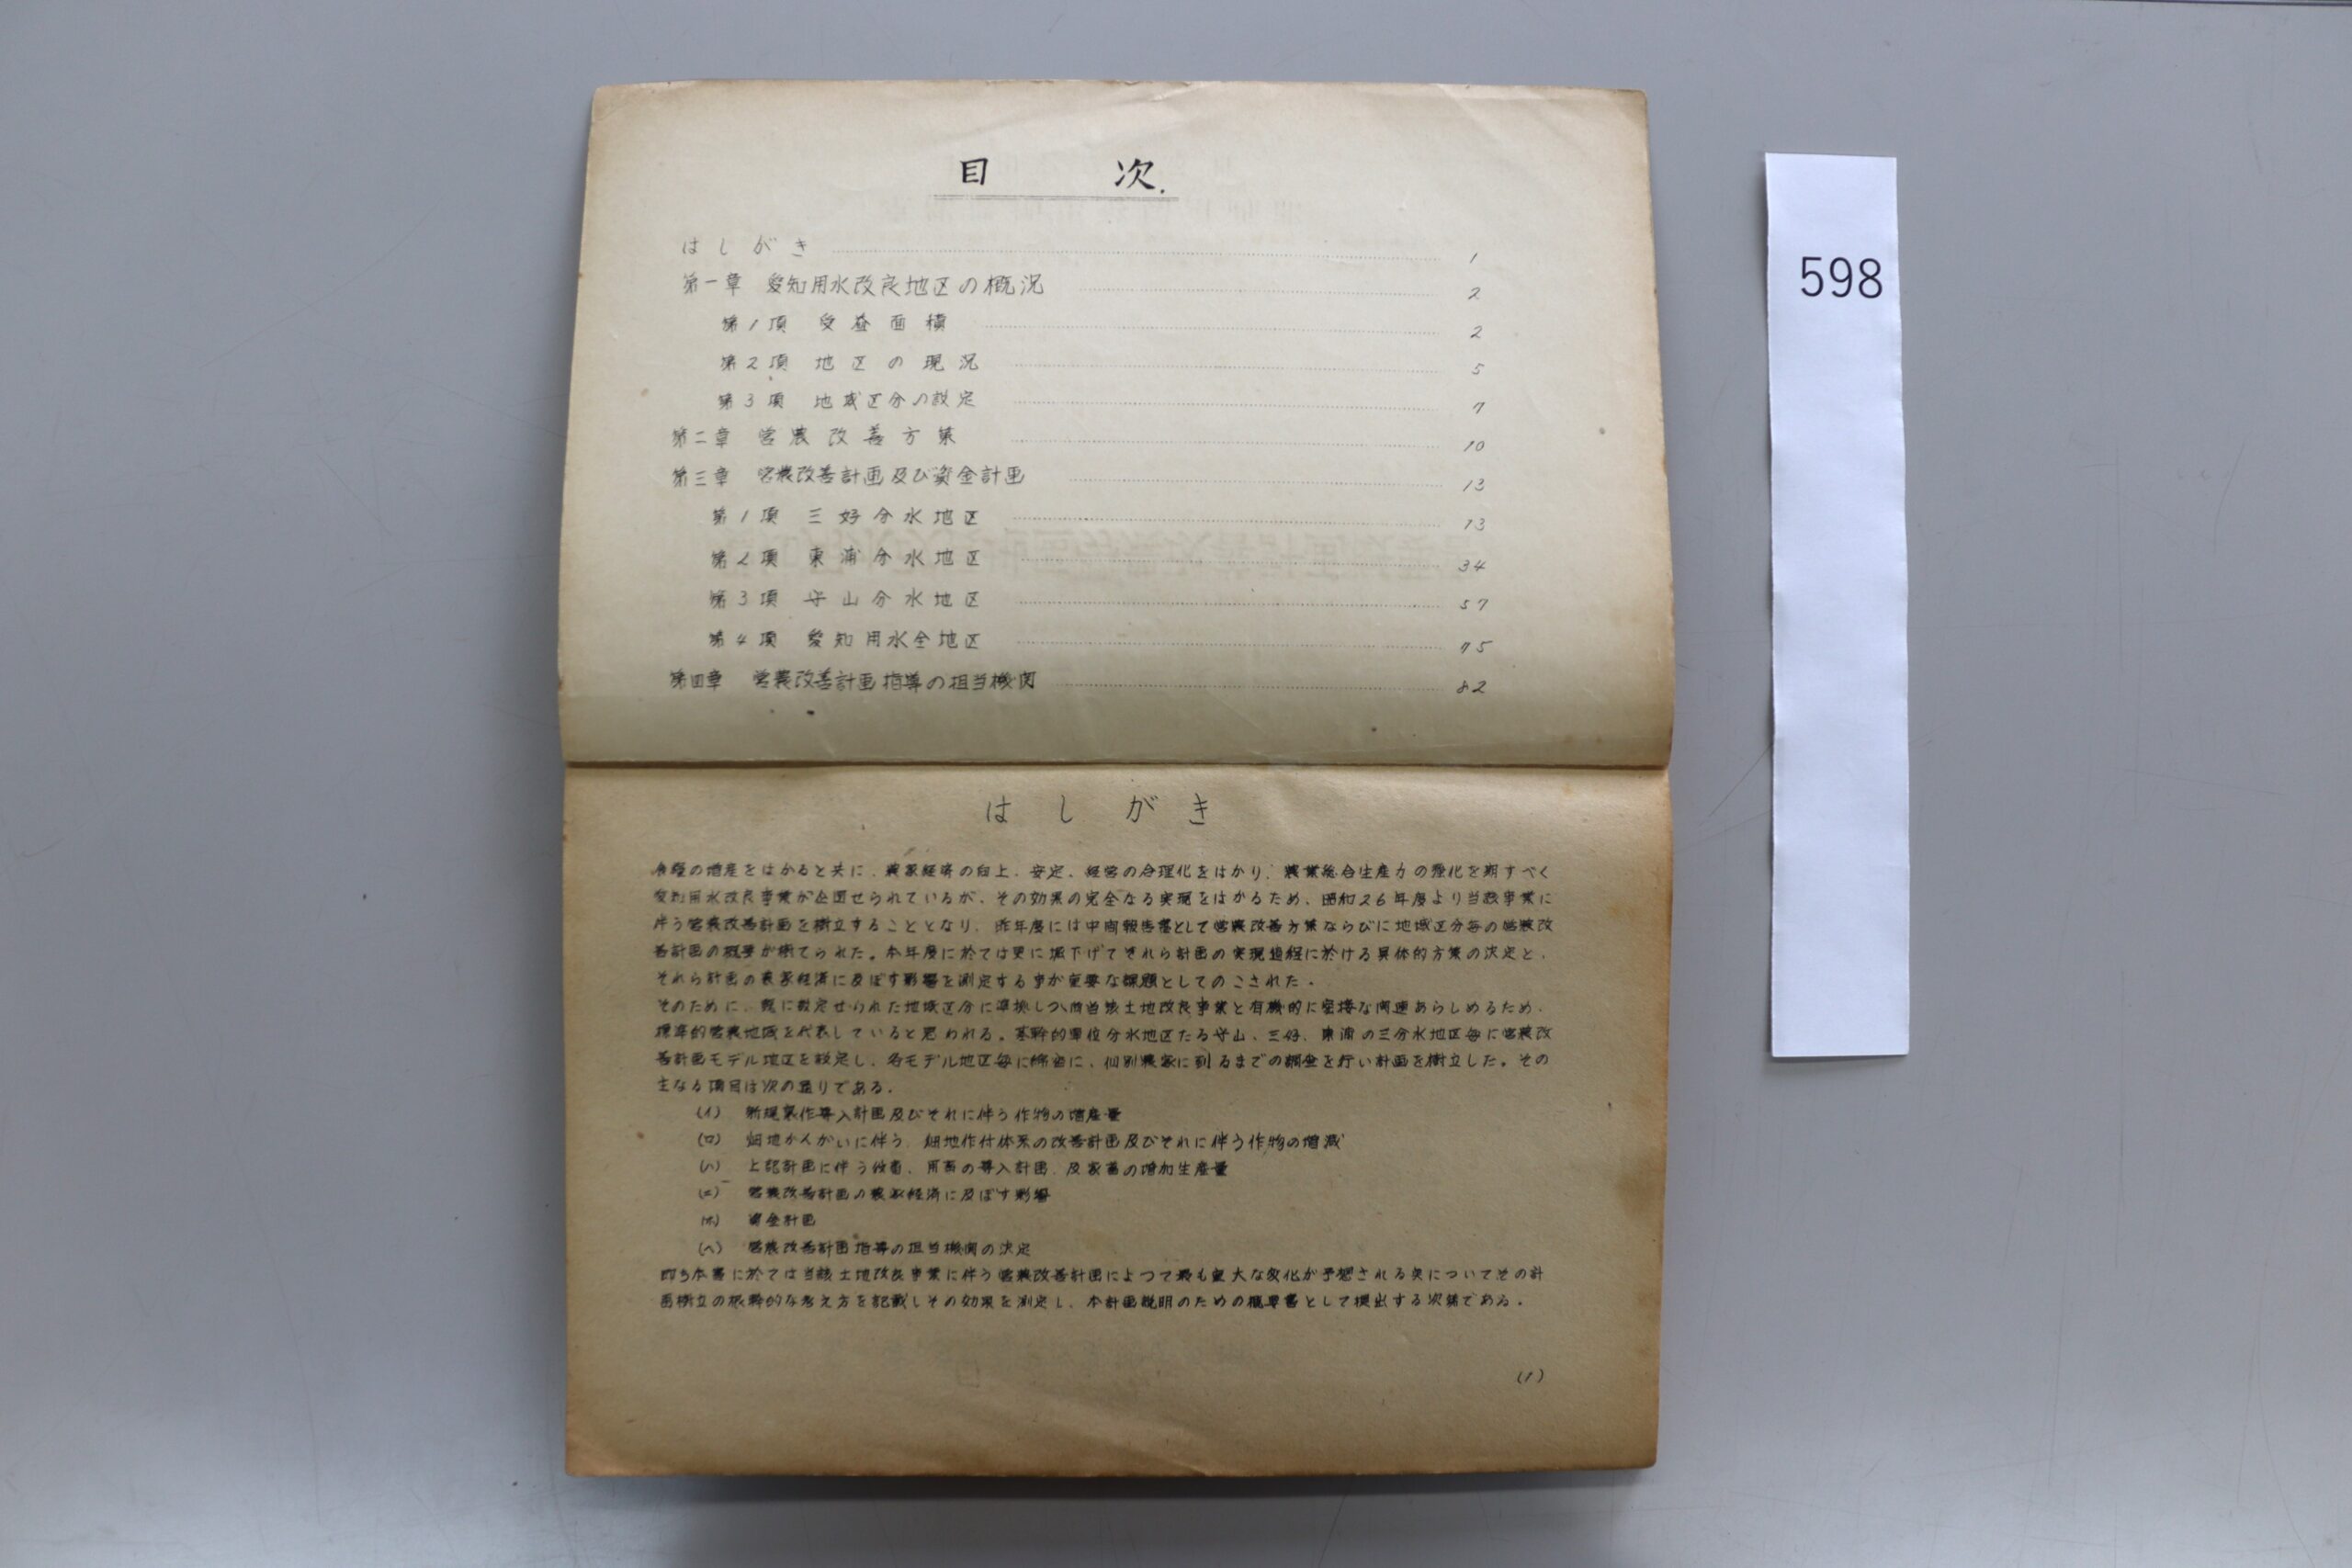 目 次.
はしがき 1
第一章 愛知用水改良地区の概況 2
第1項 受益面積 2
第2項 地区の現況 5
第3項 地域区分の設定 7
第二章 営農改善方策 10
第三章 営農改善計画及び資金計画 13
第1項 三好分水地区 13
第2項 東浦分水地区 34
第3項 守山分水地区 57
第4項 愛知用水全地区 75
第四章 営農改善計画指導の担当機関 82
はしがき
食糧の増産をはかると共に、農家経済の向上、安定、経営の合理化をはかり、農業総合生産力の強化を期すべく
愛知用水改良事業が企図せられているが、その効果の完全なる実現をはかるため、昭和26年度より当該事業に
伴う営農改善計画を樹立することとなり、昨年度には中間報告書として営農改善方策ならびに地域区分毎の営農改
善計画の概要が樹てられた。本年度に於ては更に掘下げてそれら計画の実現過程に於ける具体的方策の決定と、
それら計画の農家経済に及ぼす影響を測定する事が重要な課題としてのこされた。
そのために、既に設定せられた地域区分に準拠しつゝ尚当該土地改良事業と有機的に密接な関連あらしめるため、
標準的営農地域を代表していると思われる。基幹的単位分水地区たる守山、三好、東浦の三分水地区毎に営農改
善計画モデル地区を設定し、各モデル地区毎に綿密に、個別農家に到るまでの調査を行い計画を樹立した。その
主なる項目は次の通りである。
(イ) 新規裏作導入計画及びそれに伴う作物の増産量
(ロ) 畑地かんがいに伴う、畑地作付体系の改善計画及びそれに伴う作物の増減
(ハ) 上記計画に伴う役畜、用畜の導入計画、及家畜の増加生産量
(ニ) 営農改善計画の農家経済に及ぼす影響
(ホ) 資金計画
(ヘ) 営農改善計画指導の担当機関の決定
即ち本書に於ては当該土地改良事業に伴う営農改善計画によつて最も重大な変化が予想される点についてその計
画樹立の根幹的な考え方を記載しその効果を測定し、本計画説明のための概要書として提出する次第である。
(1)
598